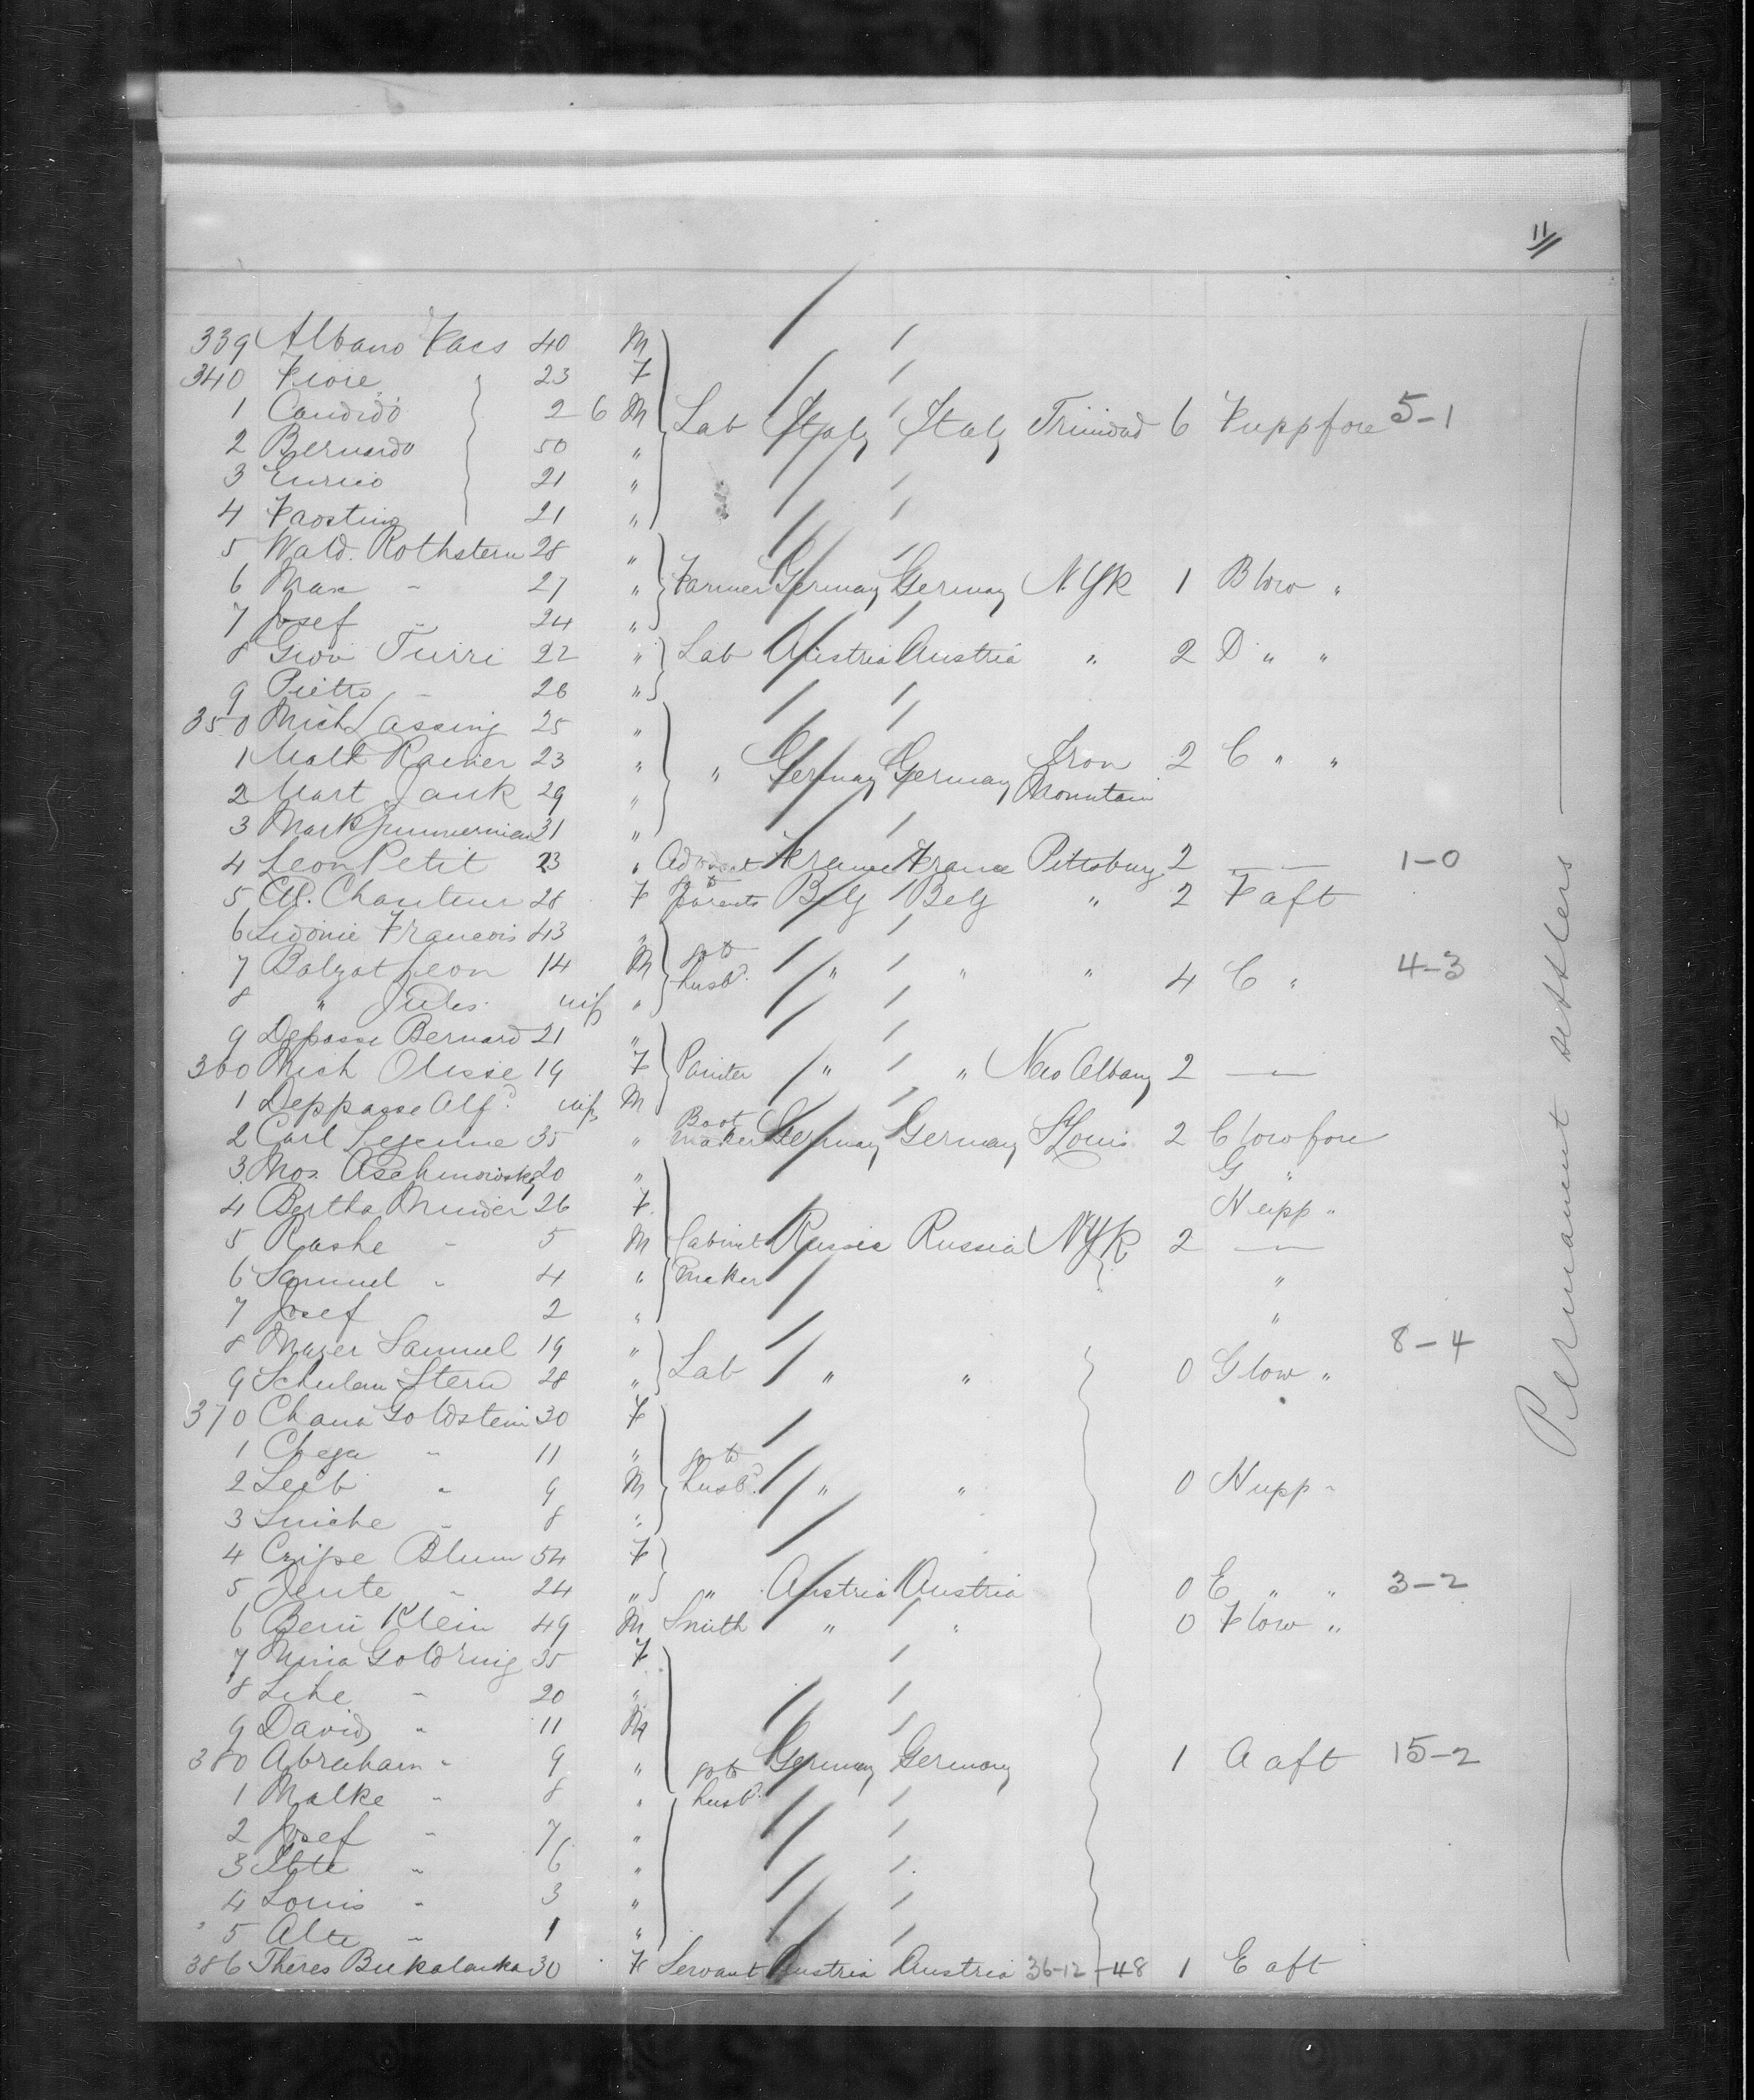 11
339 Albano Facs 40 M
340 Fiore 23 F
1 Candido 2 6 M Lab Italy Italy Trinidad 6 F upp fore 5-1
2 Bernardo 50 "
3 Enrico 21 "
4 Faosting 21 "
5 Wald. Rothstern 28 "
6 Max " 27 " Farmer Germany Germany N Yk 1 B low "
7 Josef " 24 "
8 Giov Turri 22 " Lab Austria Austria " 2 D " "
9 Pietto " 26 "
350 Mich Lassing 25 "
1 Malt Rainer 23 " " Germany Germany Iron 2 C " "
2 Mart Jank 29 " Mountain
3 Mark Zimmerman 31 "
4 Leon Petit 23 " Advocat France France Pittsburg 2 — 1-0
5 El. Chanteur 28 F go to parents Belg Belg " 2 F aft
6 Sidonie Francois 43 "
7 Balzat Jeon 14 M go to husbd. " " " 4 C " 4-3
8 " Jules inf "
9 Depasse Bernard 21 "
360 Mich Olisse 19 F Painter " " New Albany 2 —
1 Deppasse Alfd. inf M
2 Carl Lejenne 35 " Boot maker Germany Germany St Louis 2 C low fore
3 Mos. Aschmowsky 20 " G "
4 Bertha Munder 26 F H upp "
5 Rashe " 5 M Cabinet Russia Russia N Yk 2 —
6 Samuel " 4 " maker "
7 Josef 2 " "
8 Mayer Samuel 19 " 8-4
9 Schulam Stern 28 " Lab " " 0 G low "
370 Chana Goldstein 30 F
1 Cheya " 11 " go to
2 Leib " 9 M husbd. " " 0 H upp "
3 Smiche " 8 "
4 Cripe Blum 54 F
5 Jente " 24 " " Austria Austria 0 E " " 3-2
6 Beni Klein 49 M Smith " " 0 F low "
7 Mina Goldring 35 F
8 Lihe " 20 "
9 David " 11 M
380 Abraham " 9 " go to Germany Germany 1 A aft 15-2
1 Malke " 8 " husbd.
2 Josef " 7 "
3 Itte " 6 "
4 Louis " 3 "
5 Alte " 1 "
386 Theres Bukalanka 30 F Servant Austria Austria 36-12-48 1 E aft
Permanent settlers